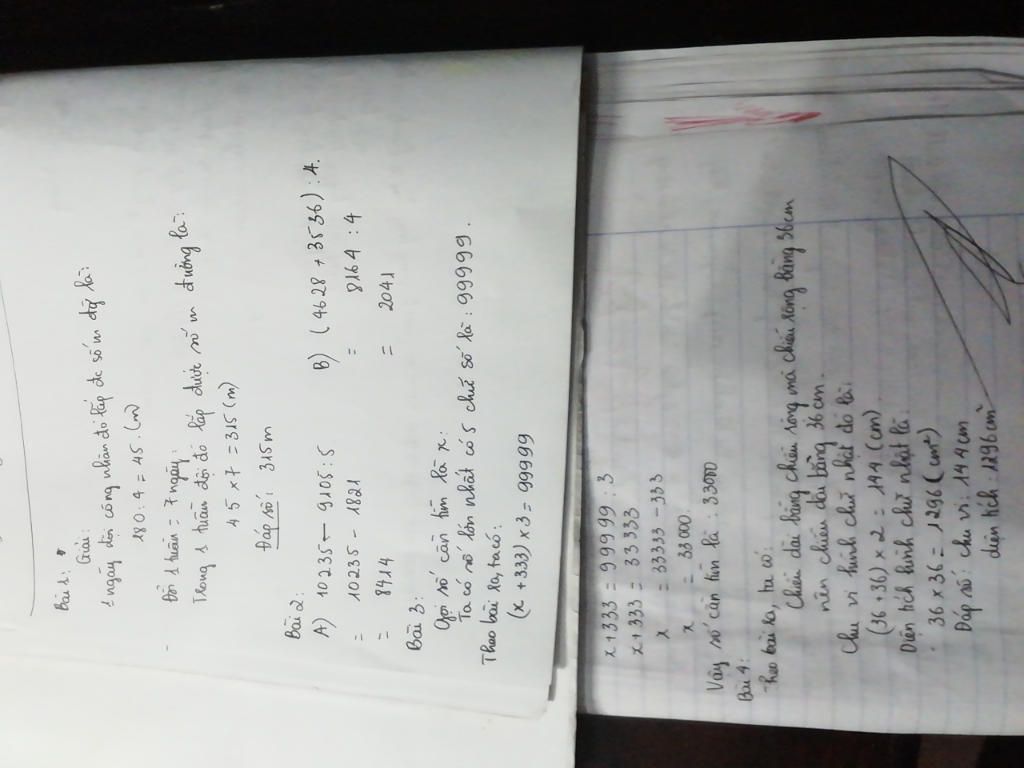 Bài 1:
Giải:
1 ngày đội công nhân đó lắp đc số m dây là:
180 : 4 = 45 (m)
Đổi 1 tuần = 7 ngày:
Trong 1 tuần đội đó lắp được số m đường là:
45 x 7 = 315 (m)
Đáp số: 315m
Bài 2:
A) 10235 - 9105 : 5
= 10235 - 1821
= 8414
B) (4628 + 3536) : 4.
= 8164 : 4
= 2041
Bài 3:
Gọi số cần tìm là x:
Ta có số lớn nhất có 5 chữ số là: 99999.
Theo bài ra, ta có:
(x + 333) x 3 = 99999
x + 333 = 99999 : 3
x + 333 = 33333
x = 33333 - 333
x = 33000.
Vậy số cần tìn là: 33000
Bài 4:
Theo bài ra, ta có:
Chiều dài bằng chiều rộng mà chiều rộng bằng 36cm
nên chiều dài bằng 36cm.
Chu vi hình chữ nhật đó là:
(36+36) x 2 = 144 (cm)
Diện tích hình chữ nhật là:
36 x 36 = 1296 (cm²)
Đáp số: chu vi: 144cm
diện tích: 1296cm²